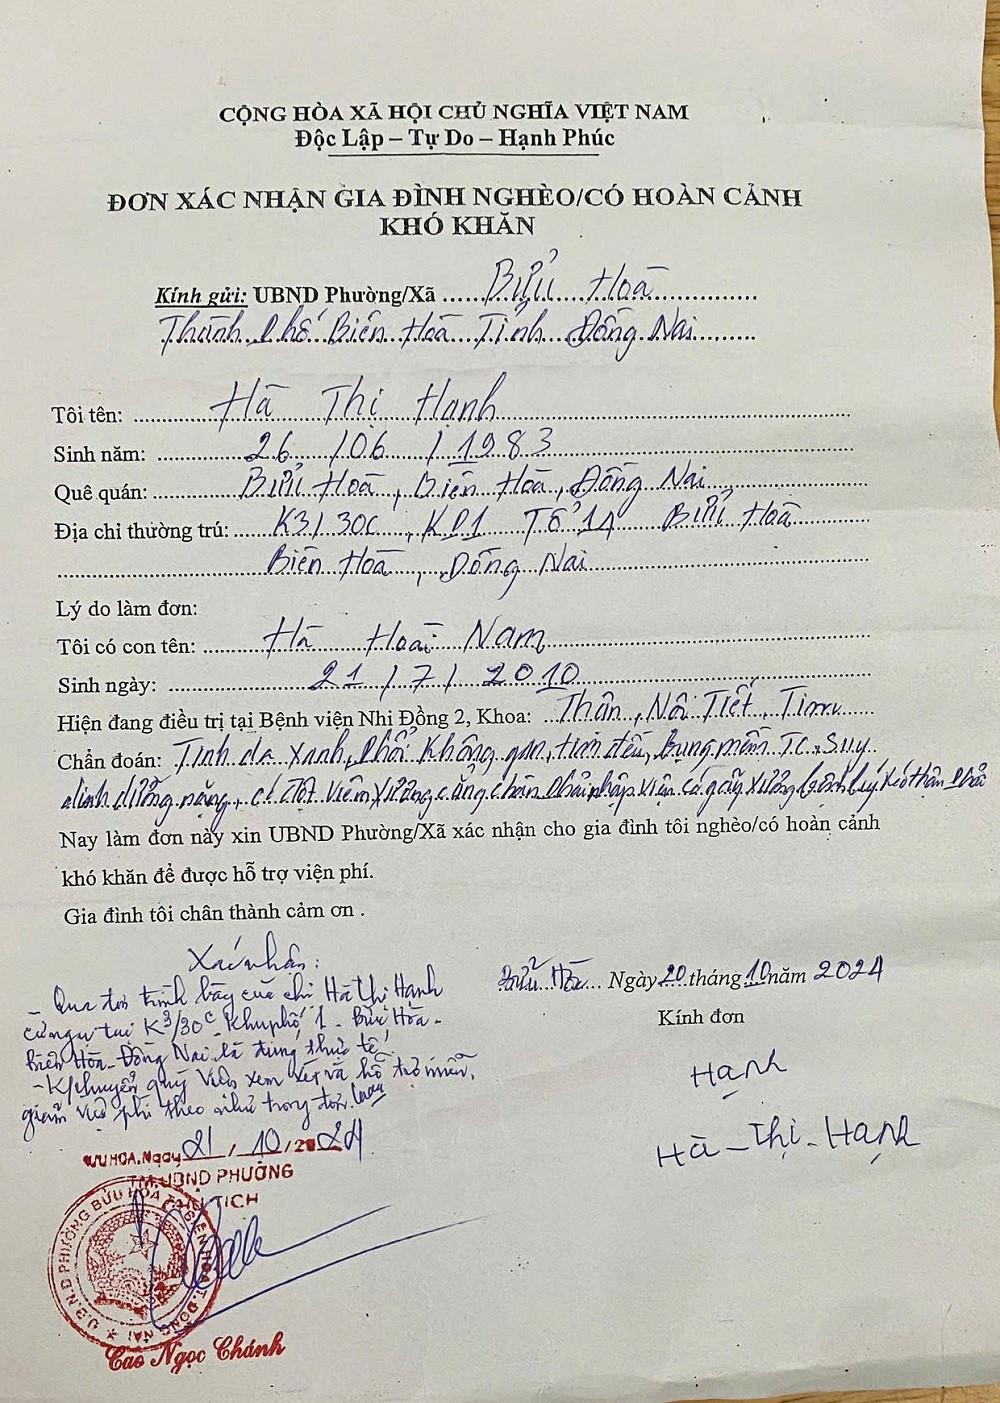 CỘNG HÒA XÃ HỘI CHỦ NGHĨA VIỆT NAM
Độc Lập – Tự Do – Hạnh Phúc
ĐƠN XÁC NHẬN GIA ĐÌNH NGHÈO/CÓ HOÀN CẢNH
KHÓ KHĂN
Kính gửi: UBND Phường/Xã Bửu Hoà
Thành Phố Biên Hoà Tỉnh Đồng Nai
Tôi tên: Hà Thị Hạnh
Sinh năm: 26 / 06 / 1983
Quê quán: Bửu Hoà, Biên Hoà, Đồng Nai
Địa chỉ thường trú: K3/30C, KP1 Tổ 14 Bửu Hoà
Biên Hoà, Đồng Nai
Lý do làm đơn:
Tôi có con tên: Hà Hoài Nam
Sinh ngày: 21 / 7 / 2010
Hiện đang điều trị tại Bệnh viện Nhi Đồng 2, Khoa: Thận, Nội Tiết
Chẩn đoán: Tỉnh da xanh, Phổi không ran, tim đều, bụng mềm TC: Suy
dinh dưỡng nặng, có đợt viêm xương cẳng chân Phải nhập viện
Nay làm đơn này xin UBND Phường/Xã xác nhận cho gia đình tôi nghèo/có hoàn cảnh
khó khăn để được hỗ trợ viện phí.
Gia đình tôi chân thành cảm ơn .
Bửu Hòa Ngày 20 tháng 10 năm 2024
Kính đơn
Hạnh
Hà - Thị - Hạnh
Xác nhận:
- Qua đơn trình bày của chị Hà Thị Hạnh
cư ngụ tại K3/30C Khu phố 1 - Bửu Hòa -
Biên Hòa - Đồng Nai là đúng thực tế
- K/chuyển quý Viện xem xét và hỗ trợ miễn,
giảm viện phí theo như trong đơn.
ỬU HÒA, Ngày 21 / 10 / 2024
TM.UBND PHƯỜNG
CHỦ TỊCH
U.B.N.D PHƯỜNG BỬU HÒA T.P BIÊN HÒA T. ĐỒNG NAI
Cao Ngọc Chánh